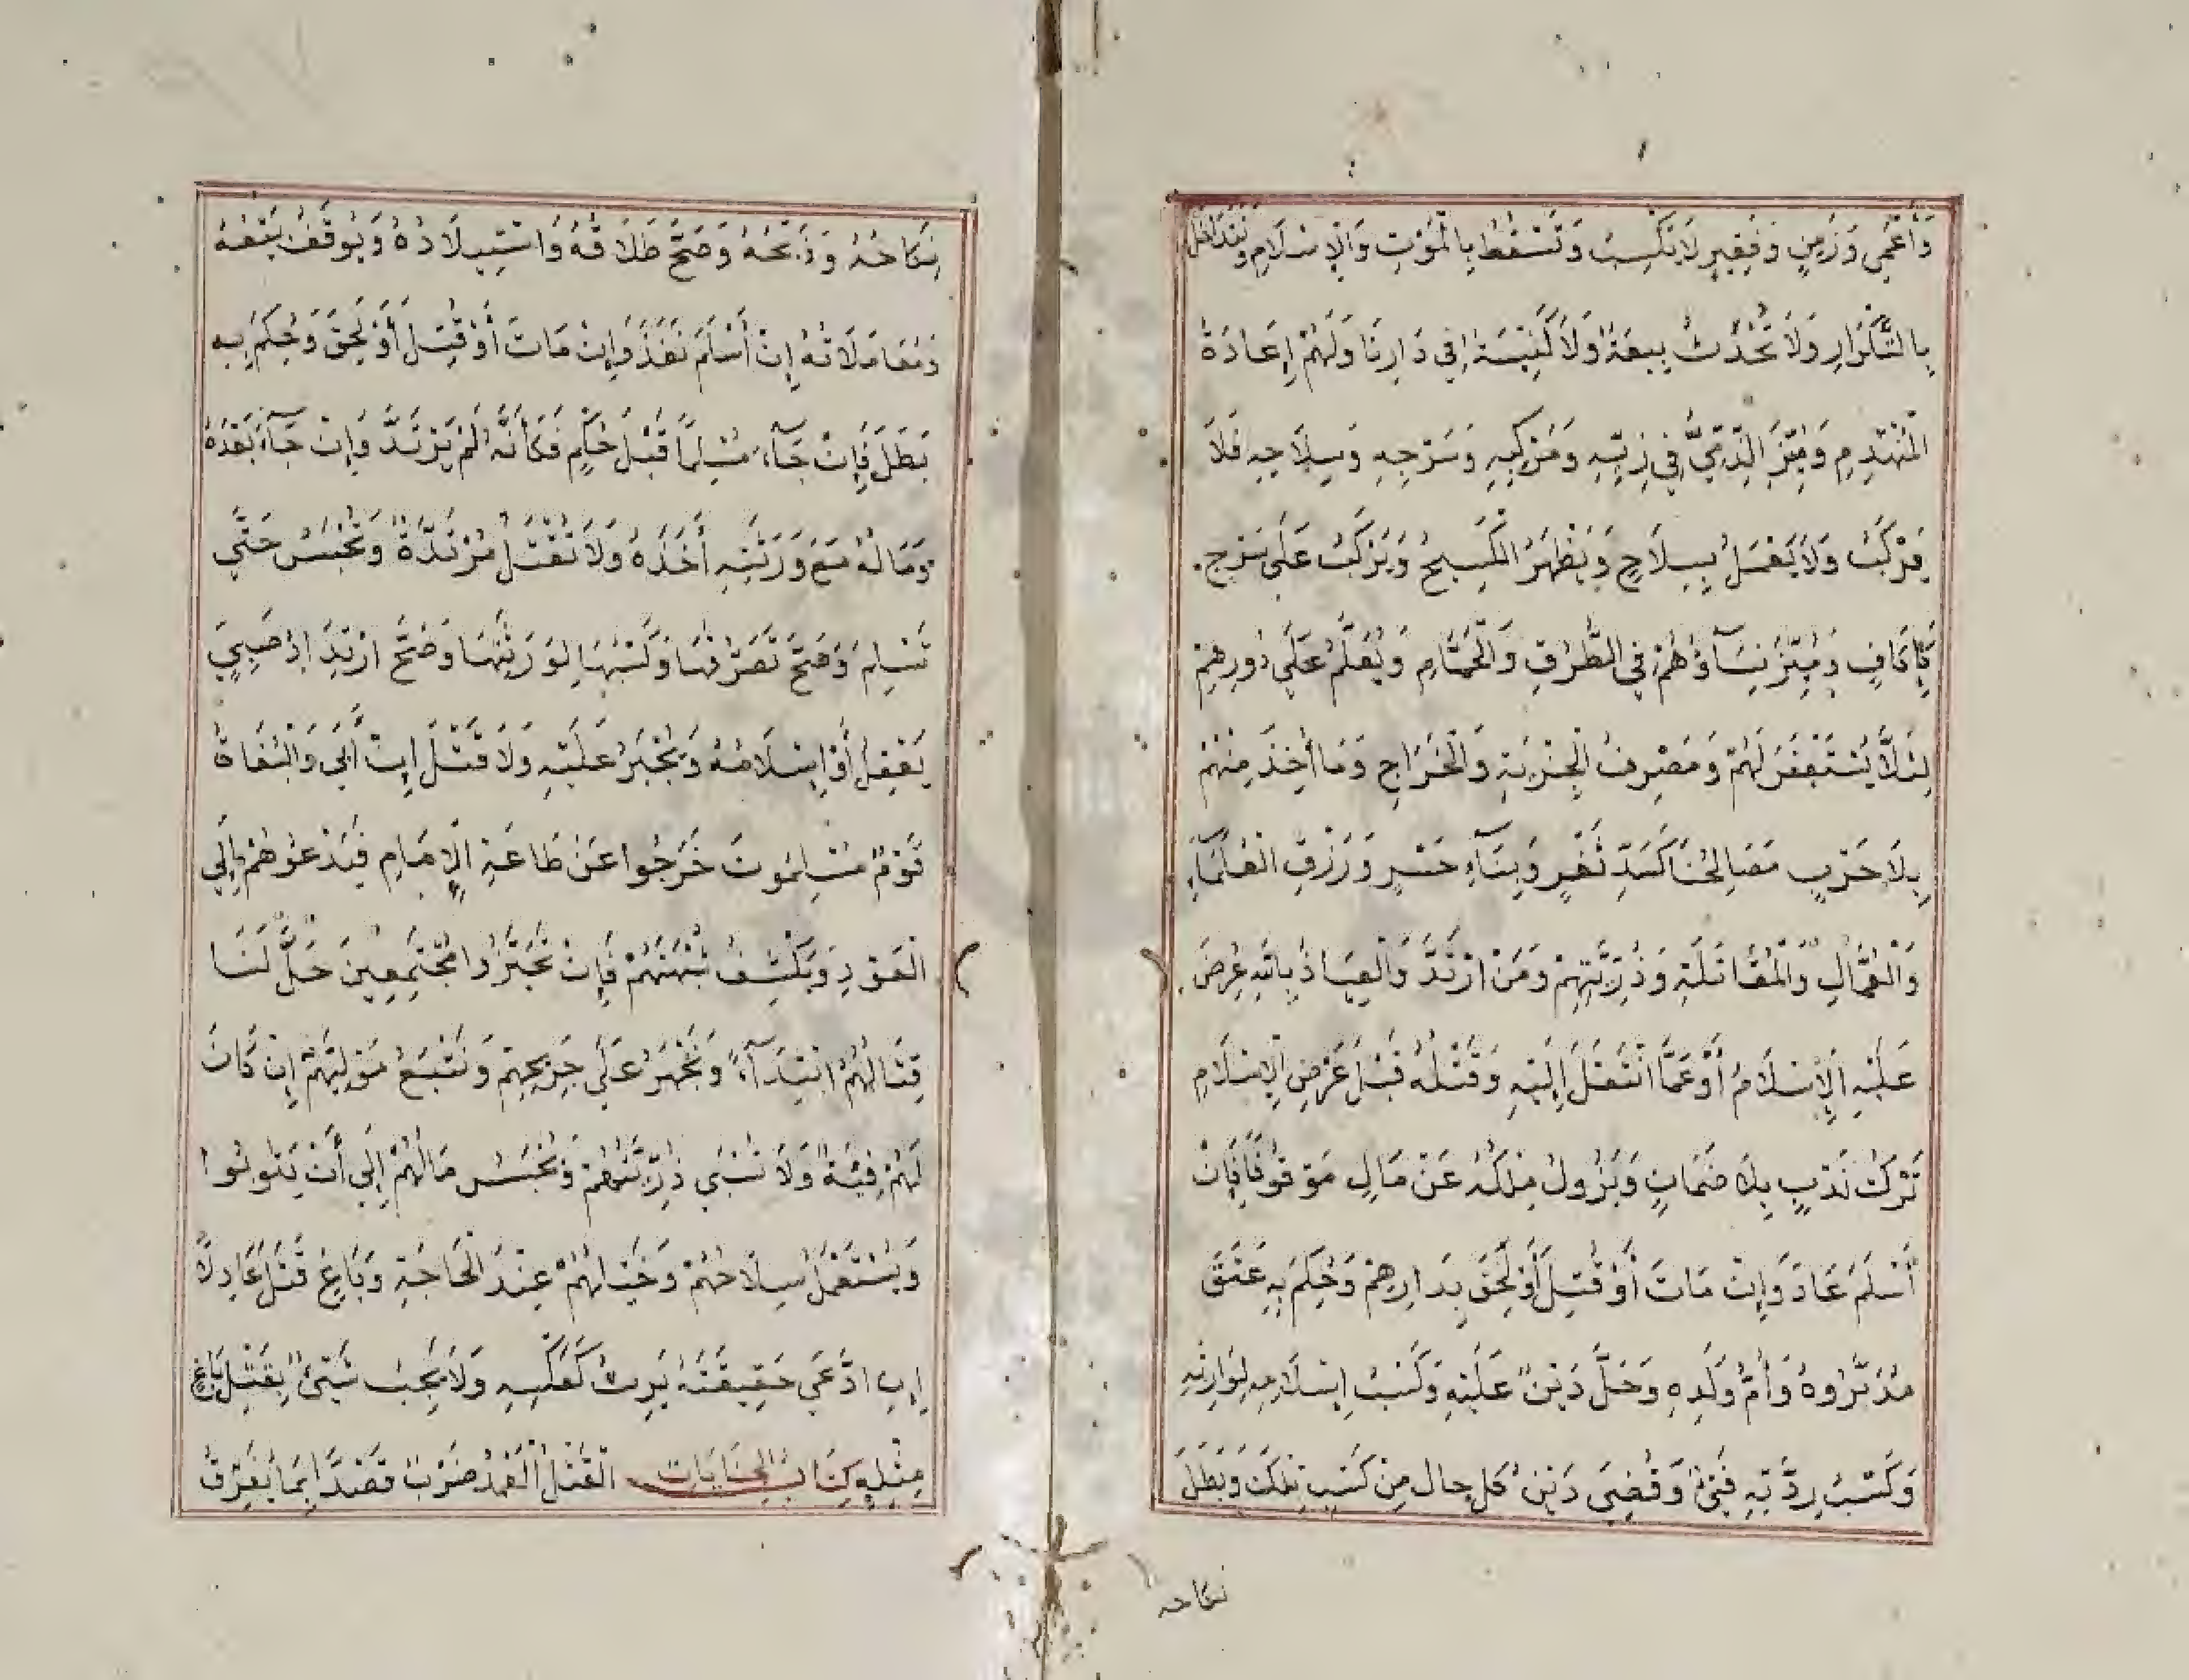 وَأَعْمَى وَزَمِنٍ وَفَقِيرٍ لَا يَكْسِبُ وَتَسْقُطُ بِالْمَوْتِ وَالْإِسْلَامِ وَتَتَدَاخَلُ
بِالتَّكْرَارِ وَلَا تُحْدَثُ بِيعَةٌ وَلَا كَنِيسَةٌ فِي دَارِنَا وَلَهُمْ إِعَادَةُ
الْمُنْهَدِمِ وَمُيِّزَ الذِّمِّيُّ فِي زِيِّهِ وَمَرْكَبِهِ وَسَرْجِهِ وَسِلَاحِهِ فَلَا
يَرْكَبُ وَلَا يَعْمَلُ بِسِلَاحٍ وَيُظْهِرُ الْكَسِيحَ وَيَرْكَبُ عَلَى سَرْجٍ
كَإِكَافٍ وَمُيِّزَ نِسَاؤُهُمْ فِي الطُّرُقِ وَالْحَمَّامِ وَيُعَلَّمُ عَلَى دُورِهِمْ
لِئَلَّا يُسْتَغْفَرَ لَهُمْ وَمَصْرِفُ الْجِزْيَةِ وَالْخَرَاجِ وَمَا أُخِذَ مِنْهُمْ
بِلَا حَرْبٍ مَصَالِحُنَا كَسَدِّ ثَغْرٍ وَبِنَاءِ جَسْرٍ وَرَزْقِ الْعُلَمَاءِ
وَالْعُمَّالِ وَالْمُقَاتَلَةِ وَذُرِّيَّتِهِمْ وَمَنْ ارْتَدَّ وَالْعِيَاذُ بِاللَّهِ عُرِضَ
عَلَيْهِ الْإِسْلَامُ أَوْ عَمَّا انْتَقَلَ إِلَيْهِ وَقَتْلُهُ قَبْلَ عَرْضِ الْإِسْلَامِ
تَرْكُ نَدْبٍ بِلَا ضَمَانٍ وَيَزُولُ مِلْكُهُ عَنْ مَالِهِ مَوْقُوفًا فَإِنْ
أَسْلَمَ عَادَ وَإِنْ مَاتَ أَوْ قُتِلَ أَوْ لَحِقَ بِدَارِهِمْ وَحُكِمَ بِهِ عَتَقَ
مُدَبَّرُوهُ وَأُمُّ وَلَدِهِ وَحَلَّ دَيْنٌ عَلَيْهِ وَكَسْبُ إِسْلَامِهِ لِوَارِثِهِ
وَكَسْبُ رِدَّتِهِ فَيْءٌ وَقُضِيَ دَيْنُ كُلِّ حَالٍ مِنْ كَسْبِ تِلْكَ وَبَطَلَ
نكاحه
نِكَاحُهُ وَذَبْحُهُ وَصَحَّ طَلَاقُهُ وَاسْتِيلَادُهُ وَيُوقَفُ بَيْعُهُ
وَمُعَامَلَاتُهُ إِنْ أَسْلَمَ نَفَذَ وَإِنْ مَاتَ أَوْ قُتِلَ أَوْ لَحِقَ وَحُكِمَ بِهِ
بَطَلَ فَإِنْ جَاءَ مُسْلِمًا قَبْلَ حُكْمٍ فَكَأَنَّهُ لَمْ يَرْتَدَّ وَإِنْ جَاءَ بَعْدَهُ
وَمَالُهُ مَعَ وَرَثَتِهِ أَخَذَهُ وَلَا تُقْتَلُ مُرْتَدَّةٌ وَتُحْبَسُ حَتَّى
تُسْلِمَ وَصَحَّ تَصَرُّفُهَا وَكَسْبُهَا لِوَرَثَتِهَا وَصَحَّ ارْتِدَادُ صَبِيٍّ
يَعْقِلُ أَوْ إِسْلَامُهُ وَيُجْبَرُ عَلَيْهِ وَلَا قَتْلَ إِنْ أَبَى وَالْبُغَاةُ
قَوْمٌ مُسْلِمُونَ خَرَجُوا عَنْ طَاعَةِ الْإِمَامِ فَيَدْعُوهُمْ إِلَى
الْعَوْدِ وَيَكْشِفُ شُبْهَتَهُمْ فَإِنْ تَحَيَّزُوا مُجْتَمِعِينَ حَلَّ لَنَا
قِتَالُهُمْ ابْتِدَاءً وَنُجْهِزُ عَلَى جَرِيحِهِمْ وَنَتْبَعُ مُوَلِّيَهُمْ إِنْ كَانَ
لَهُمْ فِئَةٌ وَلَا نَسْبِي ذُرِّيَّتَهُمْ وَنَحْبِسُ مَالَهُمْ إِلَى أَنْ يَتُوبُوا
وَيُسْتَعْمَلُ سِلَاحُهُمْ وَخَيْلُهُمْ عِنْدَ الْحَاجَةِ وَبَاغٍ قَتَلَ عَادِلًا
إِنِ ادَّعَى حَقِيقَتَهُ يَرِثُ كَعَكْسِهِ وَلَا يَجِبُ شَيْءٌ بِقَتْلِ بَاغٍ
مِثْلِهِ كِتَابُ الْجِنَايَاتِ الْقَتْلُ الْعَمْدُ ضَرْبٌ قَصْدًا بِمَا يُفَرِّقُ